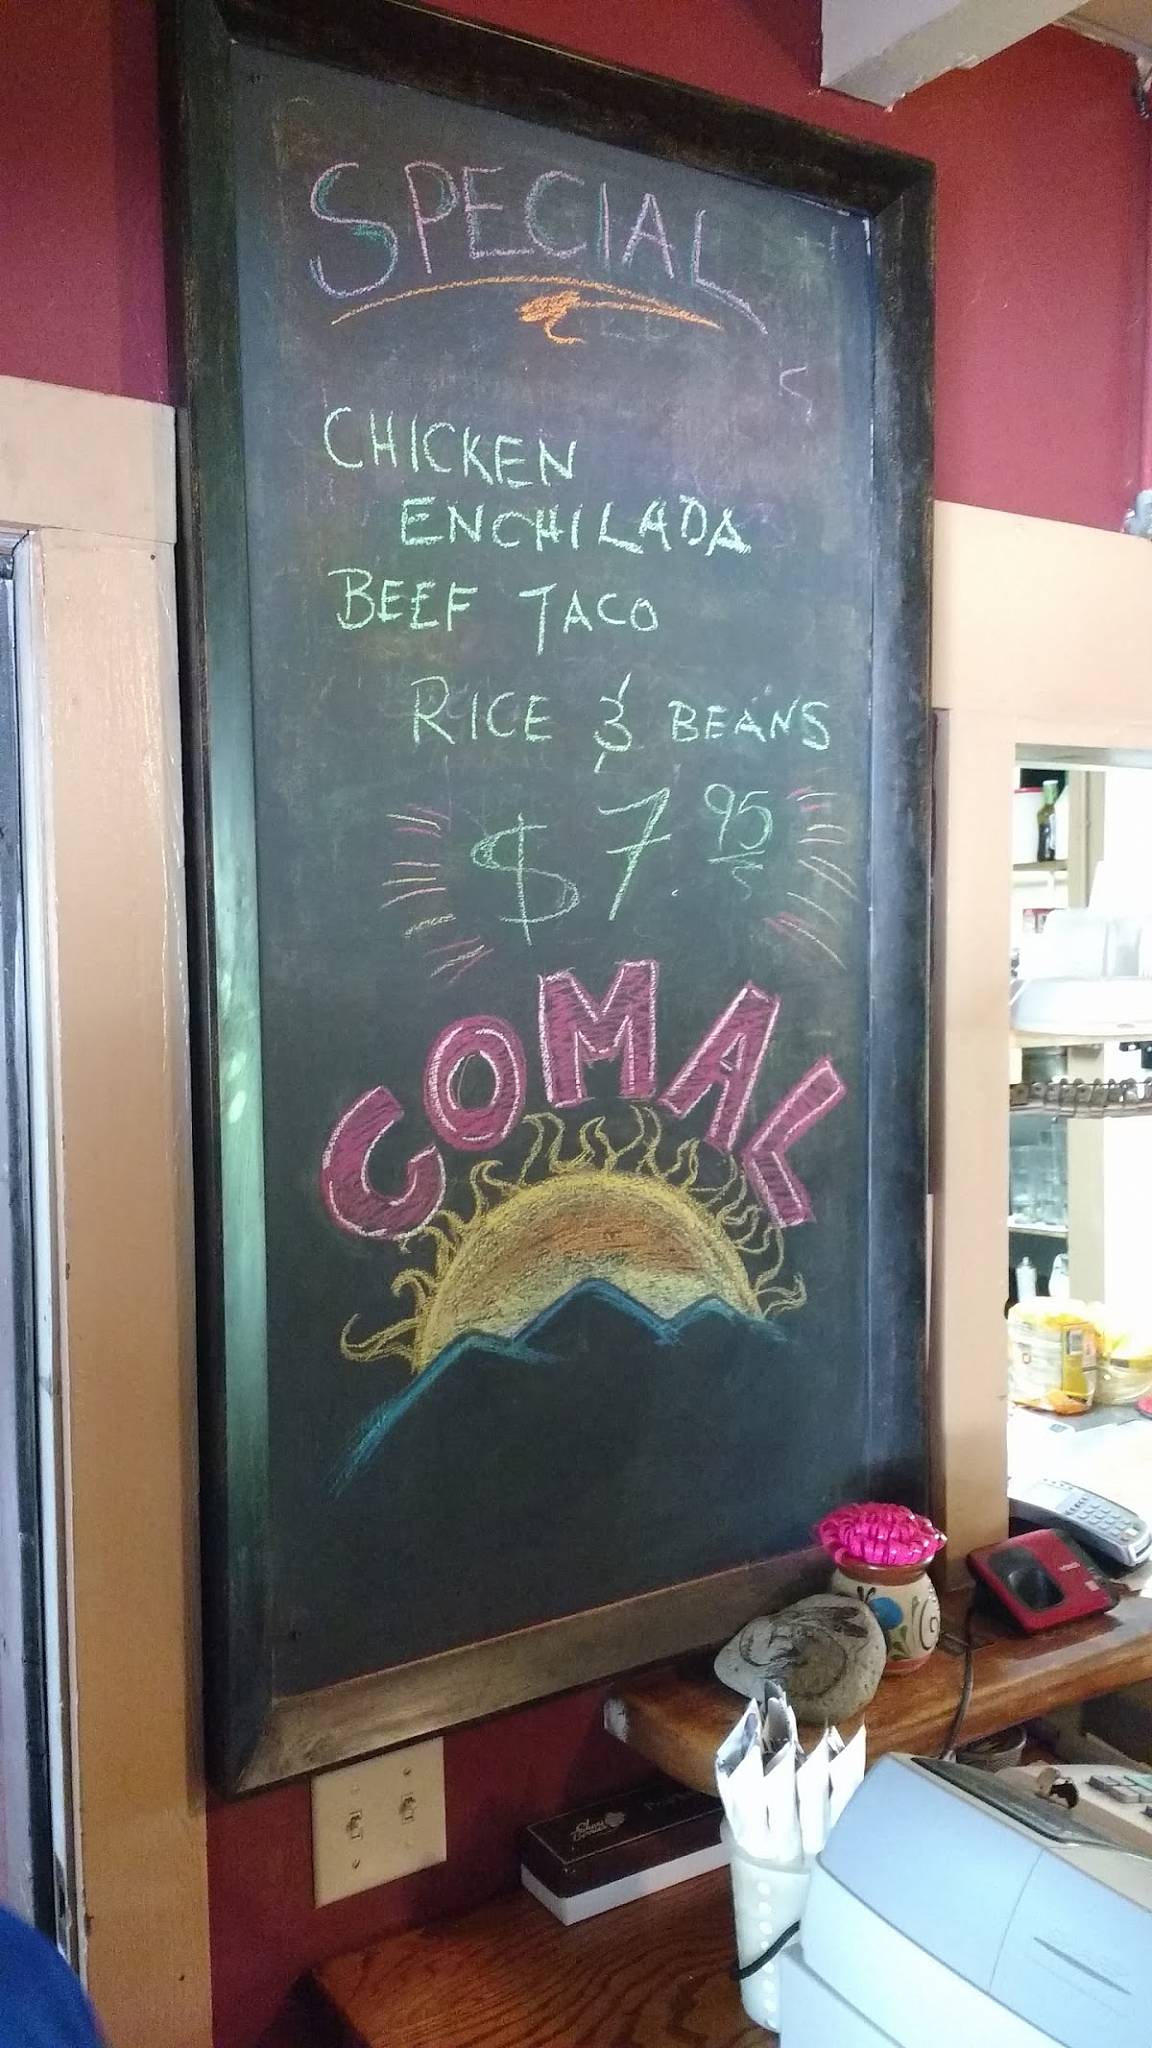 SPECIAL
CHICKEN
ENCHILADA
BEEF TACO
RICE & BEANS
$7.95
COMAL